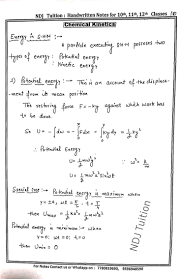 NDJ Tuition : Handwritten Notes for 10th, 11th, 12th Classes
Chemical Kinetics
Energy in S.H.M :-
A particle executing S.H.M possesses two
types of energy : Potential energy
Kinetic energy
1) Potential energy :- This is an account of the displace-
ment from its mean position
The restoring force F = -ky against which work has
to be done
So U = -∫dw = -∫Fdx = ∫ky dx = ½ky²
∴ Potential Energy
U = ½mω²y² ∵ ω² = k/m
U = ½mω²a² sin²ωt
Special case :- Potential energy is maximum when
then Umax = ½ka² = ½mω²a²
Potential energy is minimum :- when
y = 0; ωt = 0; t = 0
then Umin = 0
NDJ Tuition
For Notes Contact us or Whatsapp on :